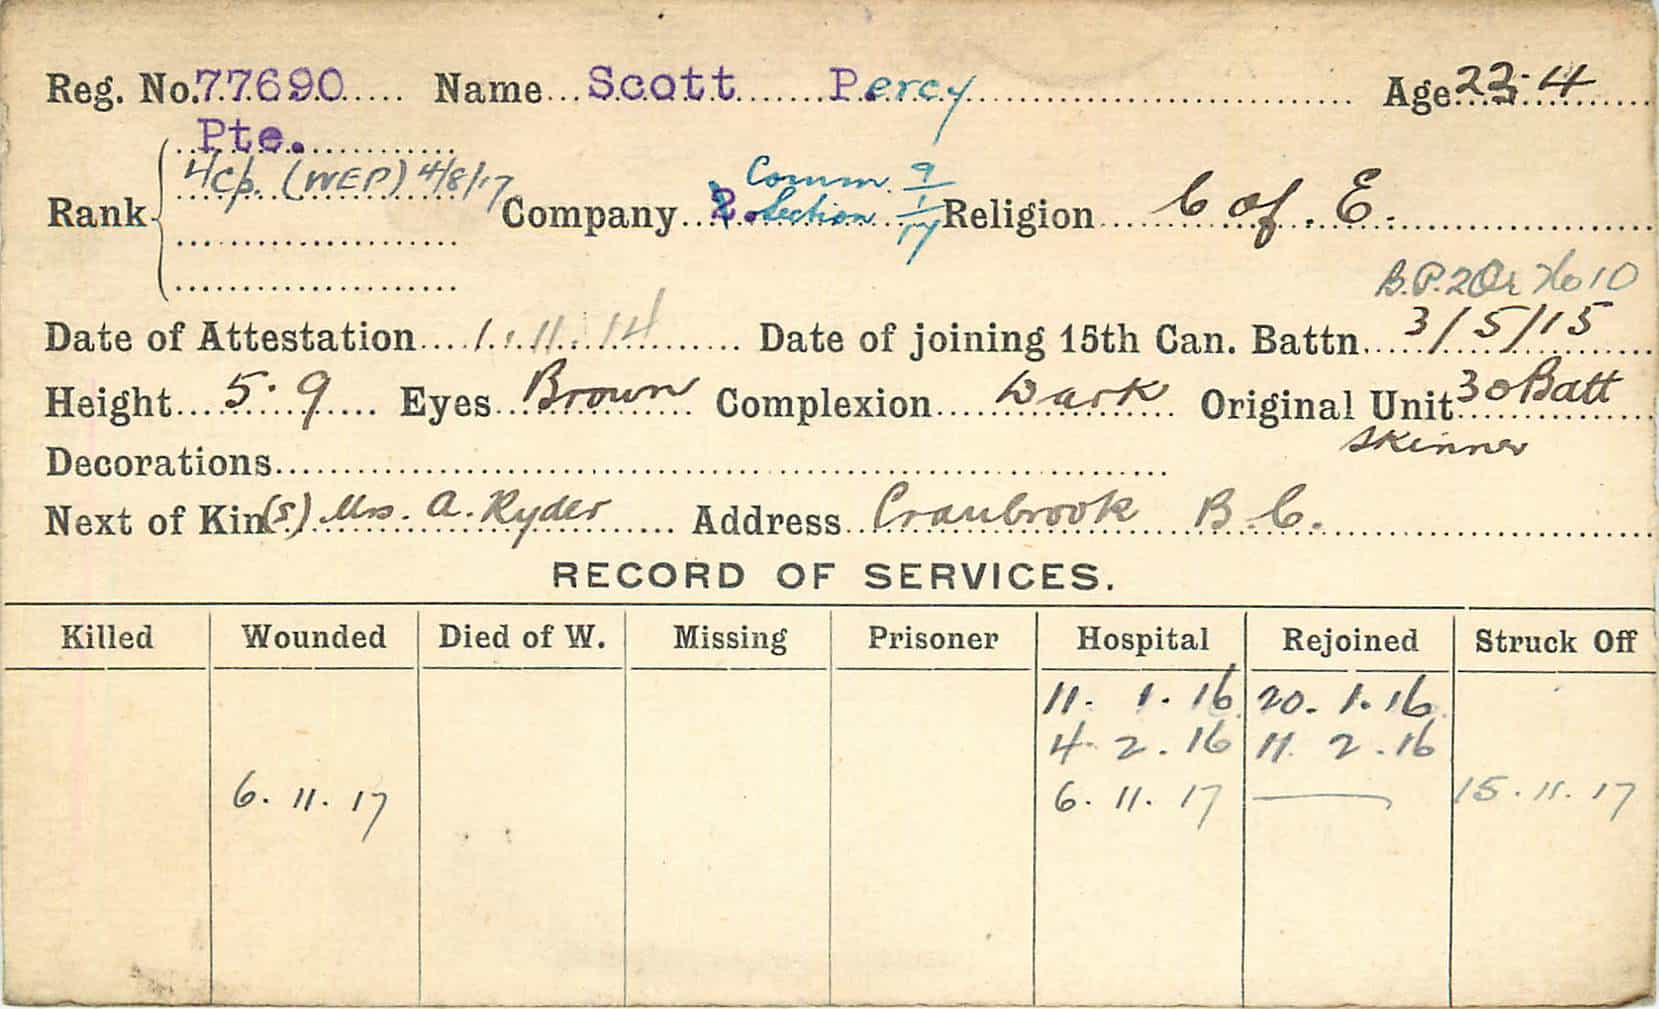 Reg. No. 77690 Name Scott Percy Age 23.4
Pte.
Rank L/Cp. (WEP) 4/8/17 Company 2. Comm. Section 9/1/17 Religion C of E.
B.P. 2 No 10
Date of Attestation 1.11.14 Date of joining 15th Can. Battn. 3/5/15
Height 5.9 Eyes Brown Complexion Dark Original Unit 30 Batt
Skinner
Decorations
Next of Kin (S) Mrs. A. Ryder Address Cranbrook B.C.
RECORD OF SERVICES.
Killed Wounded Died of W. Missing Prisoner Hospital Rejoined Struck Off
11. 1. 16 20. 1. 16
4. 2. 16 11. 2. 16
6. 11. 17 6. 11. 17 — 15. 11. 17